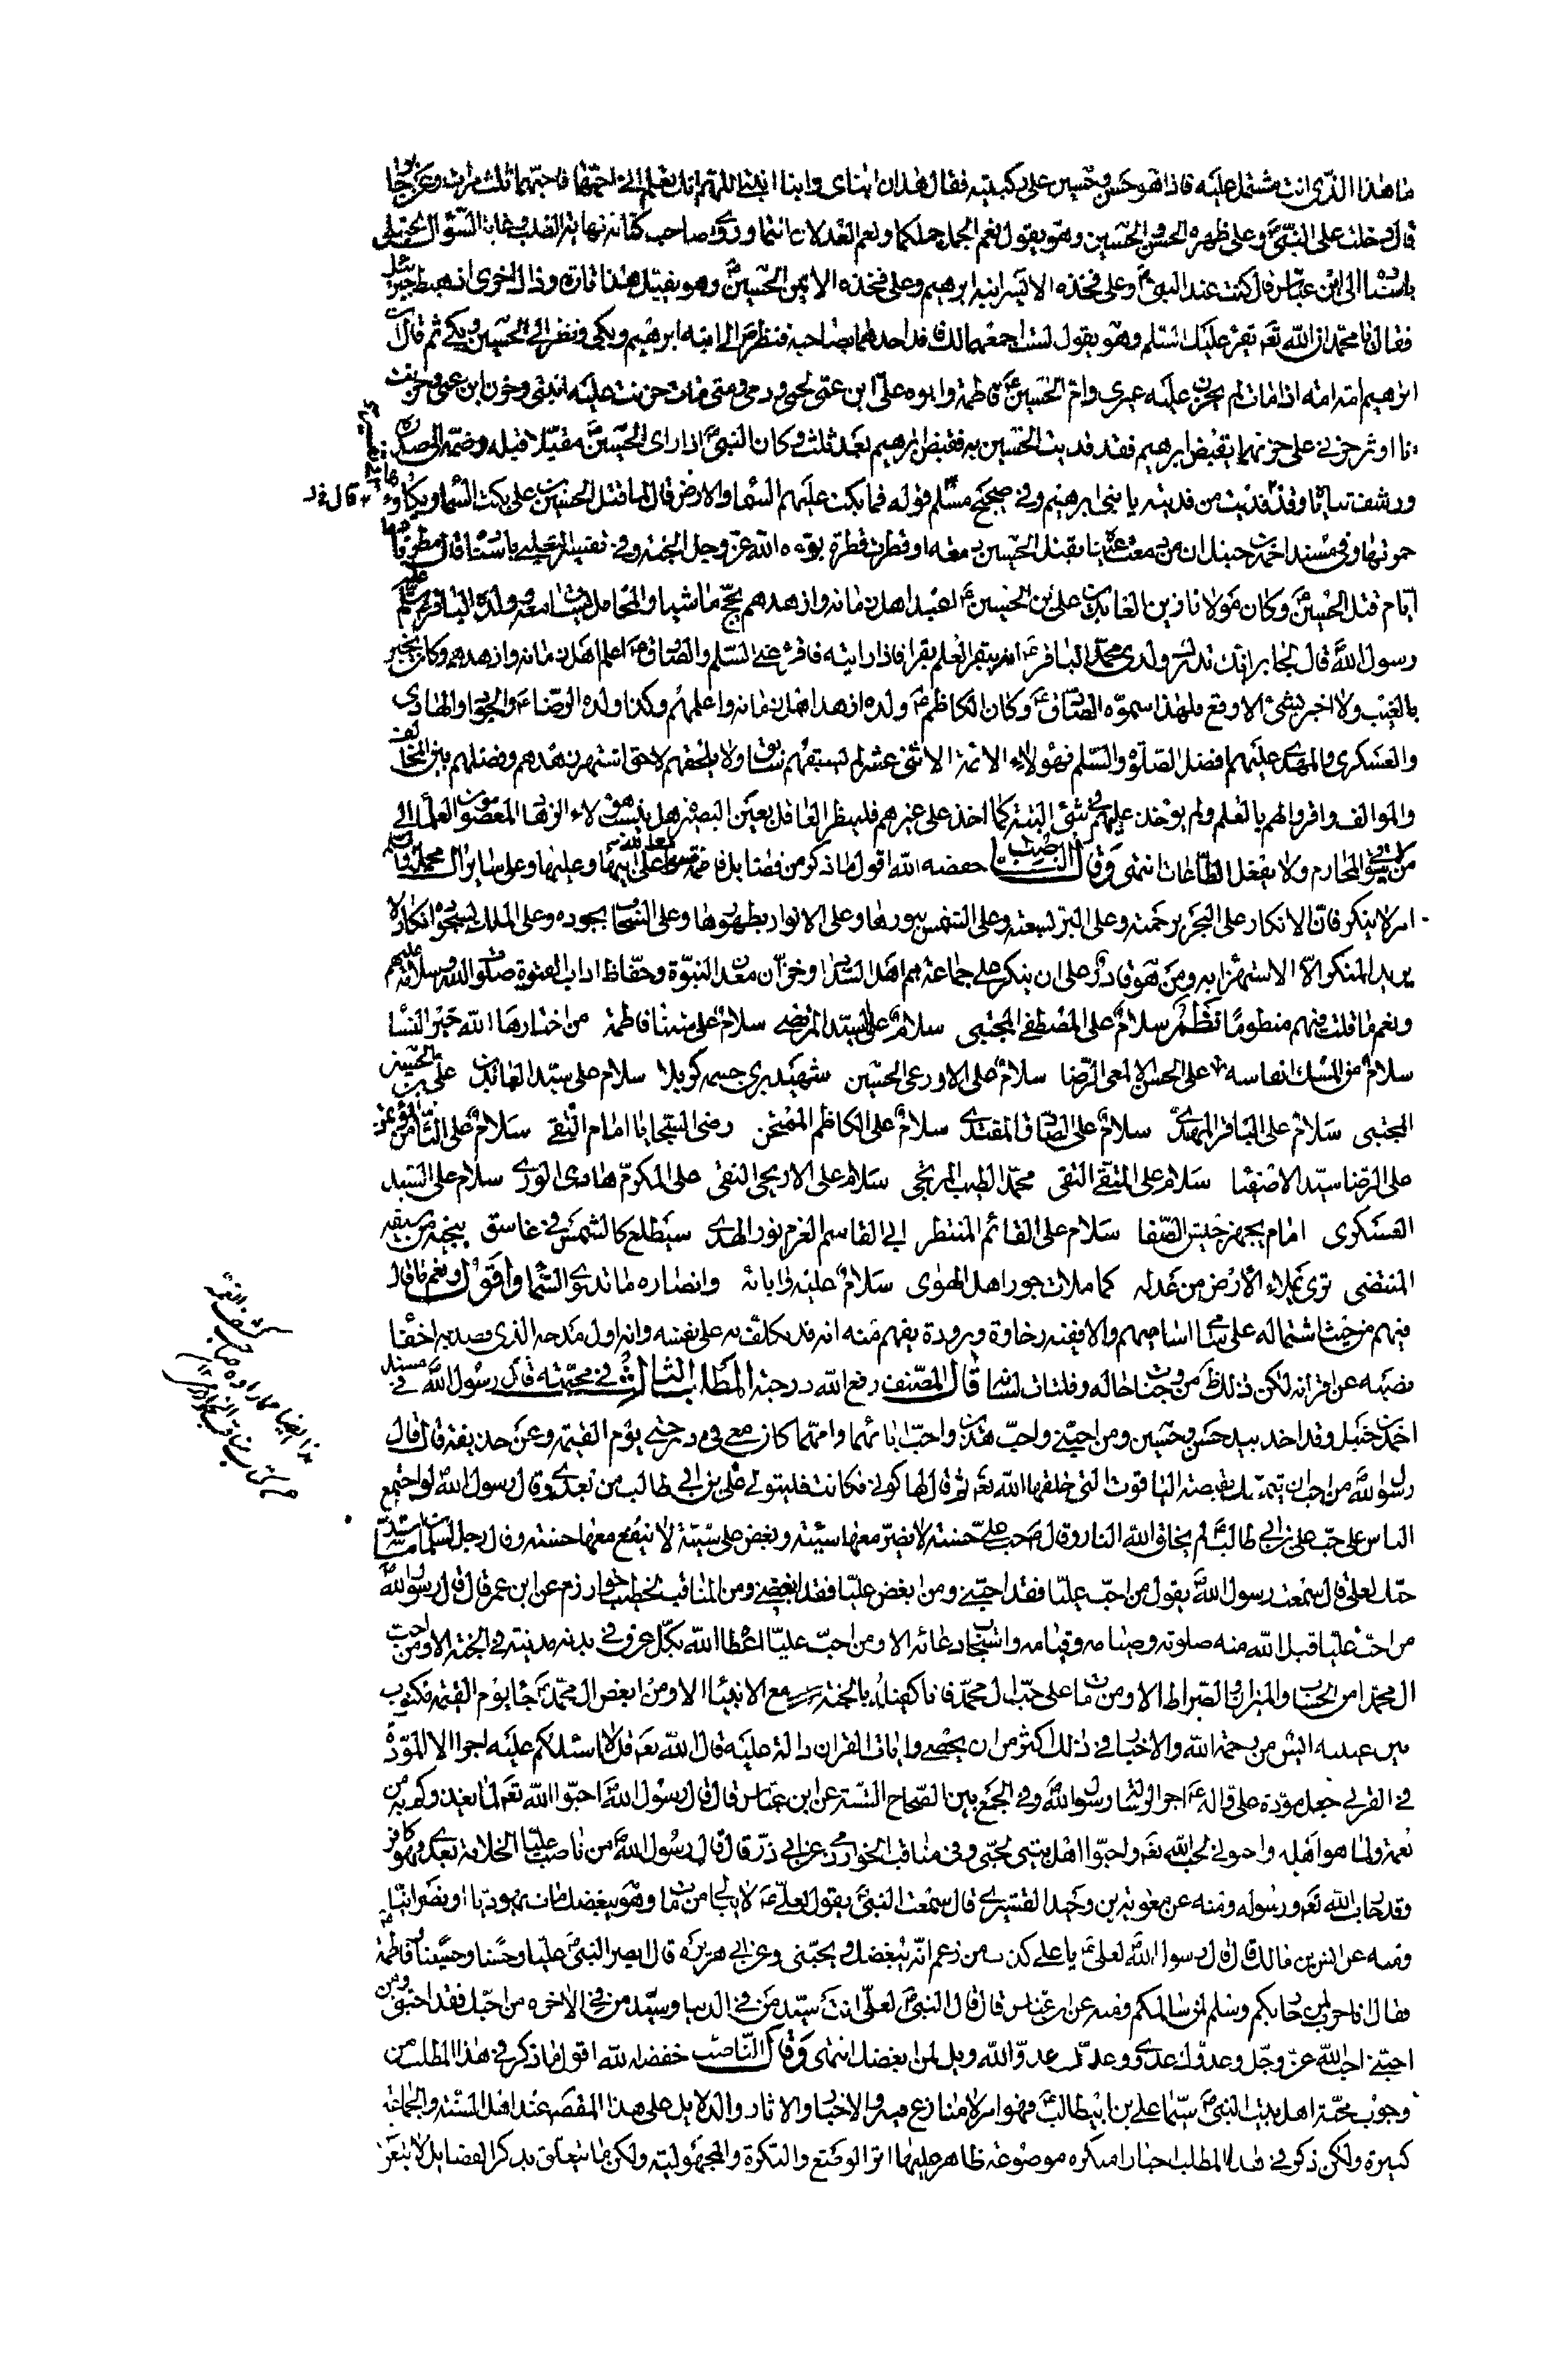 ما هذا الذي انت مشتمل عليه فاذا هو حسن وحسين على ركبتيه فقال هذان ابناى وابنا ابنتى اللهم انك تعلم انى احبهما فاحبهما ثلث مرات وعن جابر
قال دخلت على النبي وعلى ظهره الحسن والحسين وهو يقول نعم الجمل جملكما ونعم العدلان انتما وروى صاحب كتاب نهاية الطلب وغاية السؤال الحنبلي
باسناده الى ابن عباس قال كنت عند النبي وعلى فخذه الايسر ابنه ابرهيم وعلى فخذه الايمن الحسين وهو يقبل هذا تارة وذاك اخرى اذ هبط جبرئيل
فقال يا محمد ان الله تعم يقرء عليك السلم وهو يقول لست اجمعهما لك فافد احدهما بصاحبه فنظر ص الى ابنه ابرهيم وبكى ونظر الى الحسين وبكى ثم قال ان
ابرهيم امه امة اذا مات لم يحزن عليه غيرى وام الحسين فاطمة وابوه على ابن عمى لحمى ودمى ومتى مات حزنت عليه ابنتى وحزن ابن عمى وحزنت
انا اوثر حزنى على حزنهما يقبض ابرهيم فقد فديت الحسين به فقبض ابرهيم بعد ثلث وكان النبي اذا راى الحسين مقبلا قبله وضمه الى صدره
ورشف ثناياه وقال فديت من فديته يابنى ابرهيم وفي صحيح مسلم قوله فما بكت عليهم السماء والارض قال لما قتل الحسين بن على بكت السماء وبكاؤها
حمرتها وفي مسند احمد بن حنبل ان من دمعت عيناه بقتل الحسين دمعة او قطرت قطرة بوءه الله عز وجل الجنة وفي تفسير الثعلبى باسناده قال مطرنا دما
ايام قتل الحسين وكان مولانا زين العابدين على بن الحسين اعبد اهل زمانه وازهدهم يحج ماشيا والمحامل تساق معه وولده الباقر سلم عليه
رسول الله قال لجابر انك تدرك ولدى محمد الباقر انه يبقر العلم بقرا فاذا رايته فاقرئه عنى السلم والصادق اعلم اهل زمانه وازهدهم وكان يخبر
بالغيب ولا اخبر بشئ الا وقع فلهذا سموه الصادق وكان الكاظم ولده ازهد اهل زمانه واعلمهم وكذا ولده الرضا والجواد والهادى
والعسكرى والمهدى عليهم افضل الصلوة والسلم فهؤلاء الائمة الاثنى عشر لم يسبقهم سابق ولا يلحقهم لاحق اشتهر زهدهم وفضلهم بين المخالف
والموالف واقروا لهم بالعلم ولم يؤخذ عليهم في شئ البتة كما اخذ على غيرهم فلينظر العاقل بعين البصيرة هل ينسب هؤلاء الزهاد المعصومون العلماء الى
من لا يتوقى المحارم ولا يفعل الطاعات انتهى وقال الناصب خفضه الله اقول ما ذكر من فضايل فاطمة صلوات الله على ابيها وعليها وعلى ساير ال محمد والسلم
امر لا ينكر فان الانكار على البحر برحمته وعلى البر بسعته وعلى الشمس بنورها وعلى الانوار بظهورها وعلى السحاب بجوده وعلى الملك بسجوده انكار لا
يزيد المنكر الا الاستهزاء به ومن هو قادر على ان ينكر على جماعة هم اهل السداد وخزان معدن النبوة وحفاظ اداب الفتوة صلوات الله وسلامه عليهم
ونعم ما قلت فيهم منظوما نظم سلام على المصطفى المجتبى سلام على السيد المرتضى سلام على ستنا فاطمة من اختارها الله خير النساء
سلام من المسك انفاسه على الحسن الالمعى الرضا سلام على الاورعى الحسين شهيد يرى جسمه كربلا سلام على سيد العابدين على بن الحسين
المجتبى سلام على الباقر المهتدى سلام على الصادق المقتدى سلام على الكاظم الممتحن رضى السجايا امام التقى سلام على الثامن المؤتمن
على الرضا سيد الاصفيا سلام على المتقى التقى محمد الطيب المرتجى سلام على الاريحى النقى على المكرم هادى الورى سلام على السيد
العسكرى امام يجهز جيش الصفا سلام على القائم المنتظر ابى القاسم القرم نور الهدى سيطلع كالشمس في غاسق ينجيه من سيفه
المنتضى ترى يملاء الارض من عدله كما ملات جور اهل الهوى سلام عليه وابائه وانصاره ما تدوم السماء واقول ونعم ما قال
فيهم من حيث اشتماله على سامى اساميهم والا ففيه رخاوة وبرودة يفهم منه انه قد تكلف به على نفسه وانه اول مدحه الذى قصد به اخفا
نصبه عن اقرانه لكن ذلك ظهر من وجنات حاله وفلتات لسانه قال المصنف رفع الله درجته المطلب الثالث في محبته قال رسول الله في مسند
احمد بن حنبل وقد اخذ بيد حسن وحسين ومن احبنى واحب هذين واحب اباهما وامهما كان معى في درجتى يوم القيمة وعن حذيفة قال قال
رسول الله من احب ان يتمسك بقصبة الياقوت التى خلقها الله تعم ثم قال لها كونى فكانت فليتولى على بن ابى طالب من بعدى وقال رسول الله لو اجتمع
الناس على حب على بن ابى طالب لم يخلق الله النار وقال ص حب على حسنة لا يضر معها سيئة وبغض على سيئة لا ينفع معها حسنة وقال رجل لسلمان ما اشد
حبك لعلى قال سمعت رسول الله يقول من احب عليا فقد احبنى ومن ابغض عليا فقد ابغضنى ومن المناقب لخطيب خوارزم عن ابن عمر قال قال رسول الله
من احب عليا قبل الله منه صلوته وصيامه وقيامه واستجاب دعائه الا ومن احب عليا اعطاه الله بكل عرق في بدنه مدينة في الجنة الا ومن احب
ال محمد امن الحساب والميزان والصراط الا ومن مات على حب ال محمد فانا كفيله بالجنة مع الانبياء الا ومن ابغض ال محمد جاء يوم القيمة مكتوب
بين عينيه ايس من رحمة الله والاخبار في ذلك اكثر من ان يحصى وايات القران دالة عليه قال الله تعم قل لا اسئلكم عليه اجرا الا المودة
في القربى جعل مودة على واله اجر الرسالة رسول الله وفي الجمع بين الصحاح الستة عن ابن عباس قال قال رسول الله احبوا الله تعم لما يغذوكم به من
نعمة ولما هو اهله واحبونى لحب الله تعم واحبوا اهل بيتى لحبى وفي مناقب الخوارزمى عن ابى ذر قال قال رسول الله من ناصب عليا الخلافة بعدى فهو كافر
وقد حارب الله تعم ورسوله ومنه عن معوية بن وحيد القشيرى قال سمعت النبي يقول لعلى لا يبالى من مات وهو يبغضك مات يهوديا او نصرانيا
وفيه عن انس بن مالك قال قال رسول الله لعلى يا على كذب من زعم انه يبغضك ويحبنى وعن ابى هريرة قال ابصر النبي عليا وحسنا وحسينا وفاطمة
فقال انا حرب لمن حاربكم وسلم لمن سالمكم وفيه عن ابن عباس قال قال النبي لعلى انت سيد من في الدنيا وسيد من في الاخره من احبك فقد احبنى ومن
احبنى احب الله عز وجل وعدوك عدوى وعدوى عدو الله ويل لمن ابغضك انتهى وقال الناصب خفضه الله اقول ما ذكر في هذا المطلب من
وجوب محبة اهل بيت النبي سيما على بن ابيطالب فهو امر لا منازع فيه والاخبار والاثار والدلايل على هذا المقصد عند اهل السنة والجماعة
كثيرة ولكن ذكر في هذا المطلب اخبارا منكرة موضوعة ظاهر عليها اثر الوضع والنكرة والمجهولية ولكن ما يتعلق بذكر الفضايل لا نتعرض